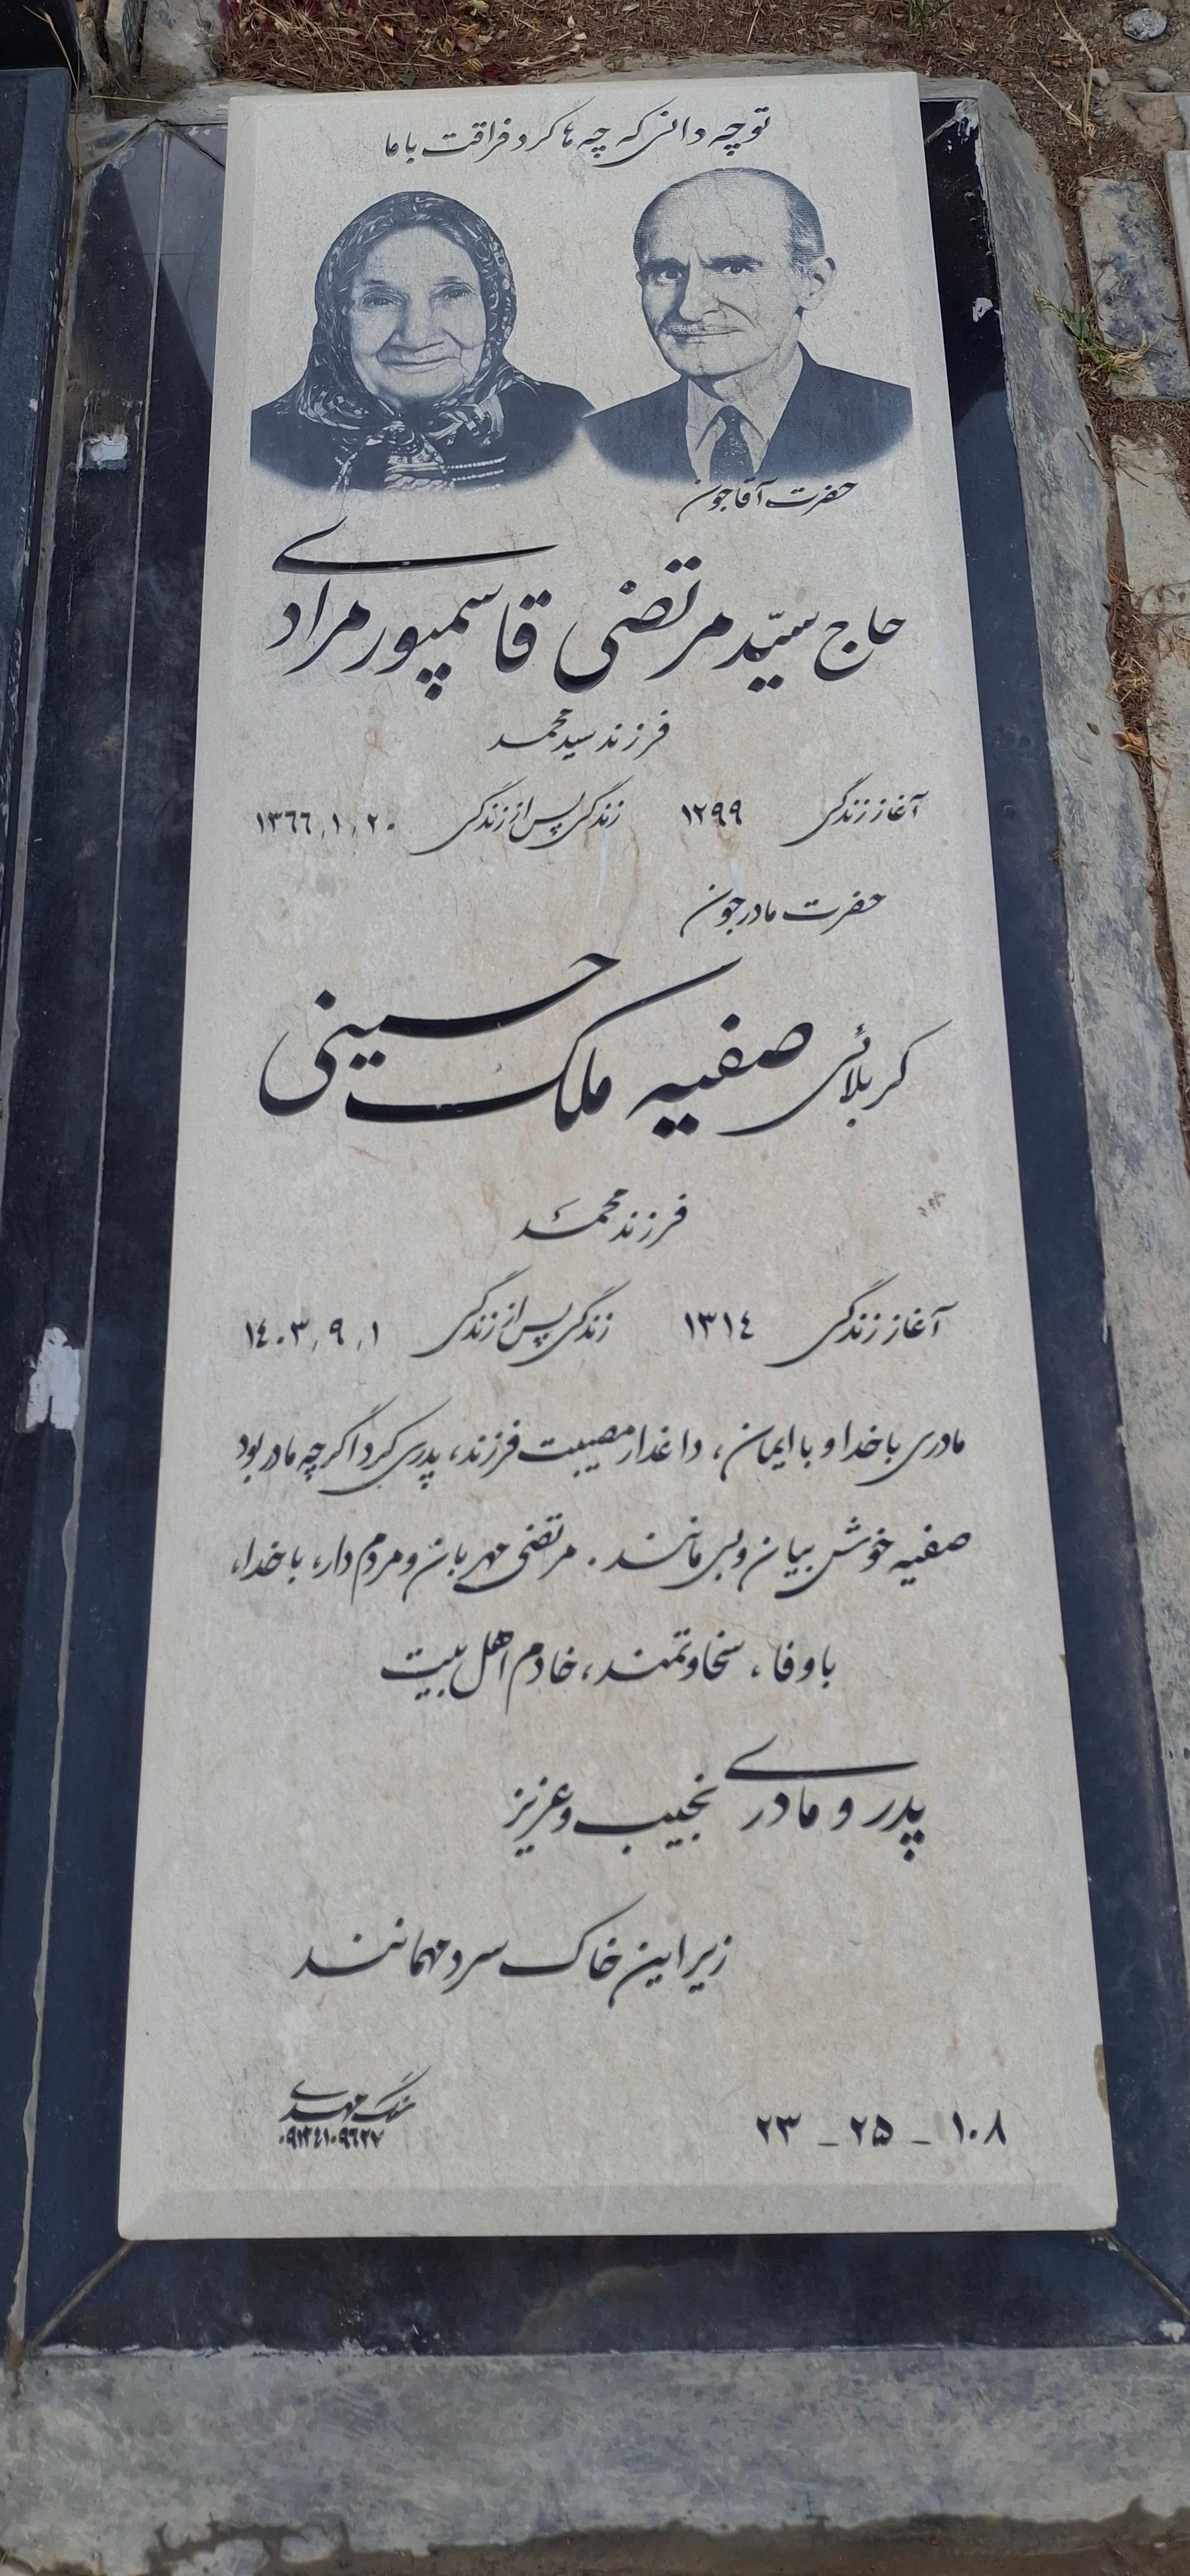 تو چه دانی که چه ها کرد فراقت با ما
حضرت آقاجون
حاج سیّد مرتضی قاسمپور مرادی
فرزند سید محمد
آغاز زندگی ۱۲۹۹ زندگی پس از زندگی ۱۳۶۶٫۱٫۲۰
حضرت مادرجون
کربلائی صفیه ملک حسینی
فرزند محمد
آغاز زندگی ۱۳۱۴ زندگی پس از زندگی ۱۴۰۳٫۹٫۱
مادری با خدا و با ایمان، داغدار مصیبت فرزند، پدری کرد اگر چه مادر بود
صفیه خوش بیان و بی مانند. مرتضی مهربان و مردم دار، با خدا،
با وفا، سخاوتمند، خادم اهل بیت
پدر و مادری نجیب و عزیز
زیر این خاک سرد مهمانند
۱۰۸ - ۲۵ - ۲۳
سنگ مهدی
۰۹۱۲۴۱۰۹۶۲۷